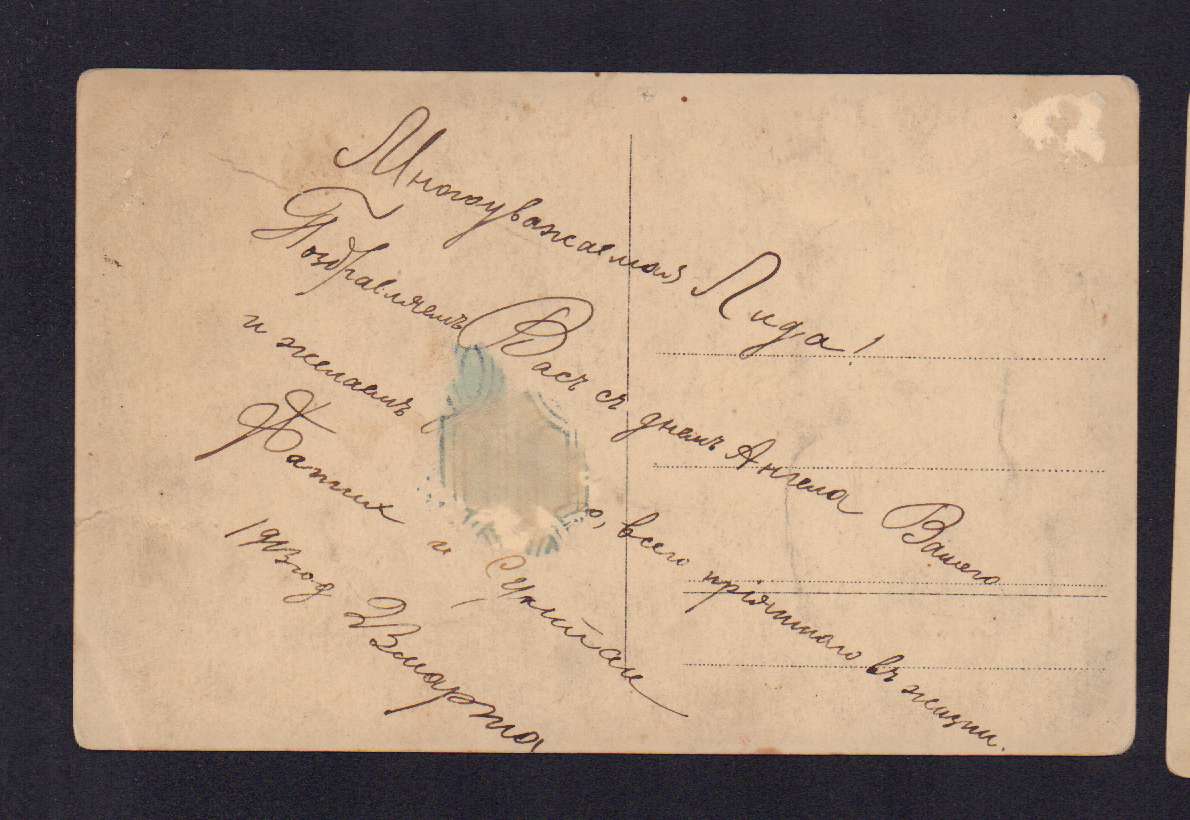 Многоуважаемая Лида!
Поздравляемъ Васъ съ днемъ Ангела Вашего
и желаемъ о, всего пріятнаго въ жизни.
и
1913 год 23 марта